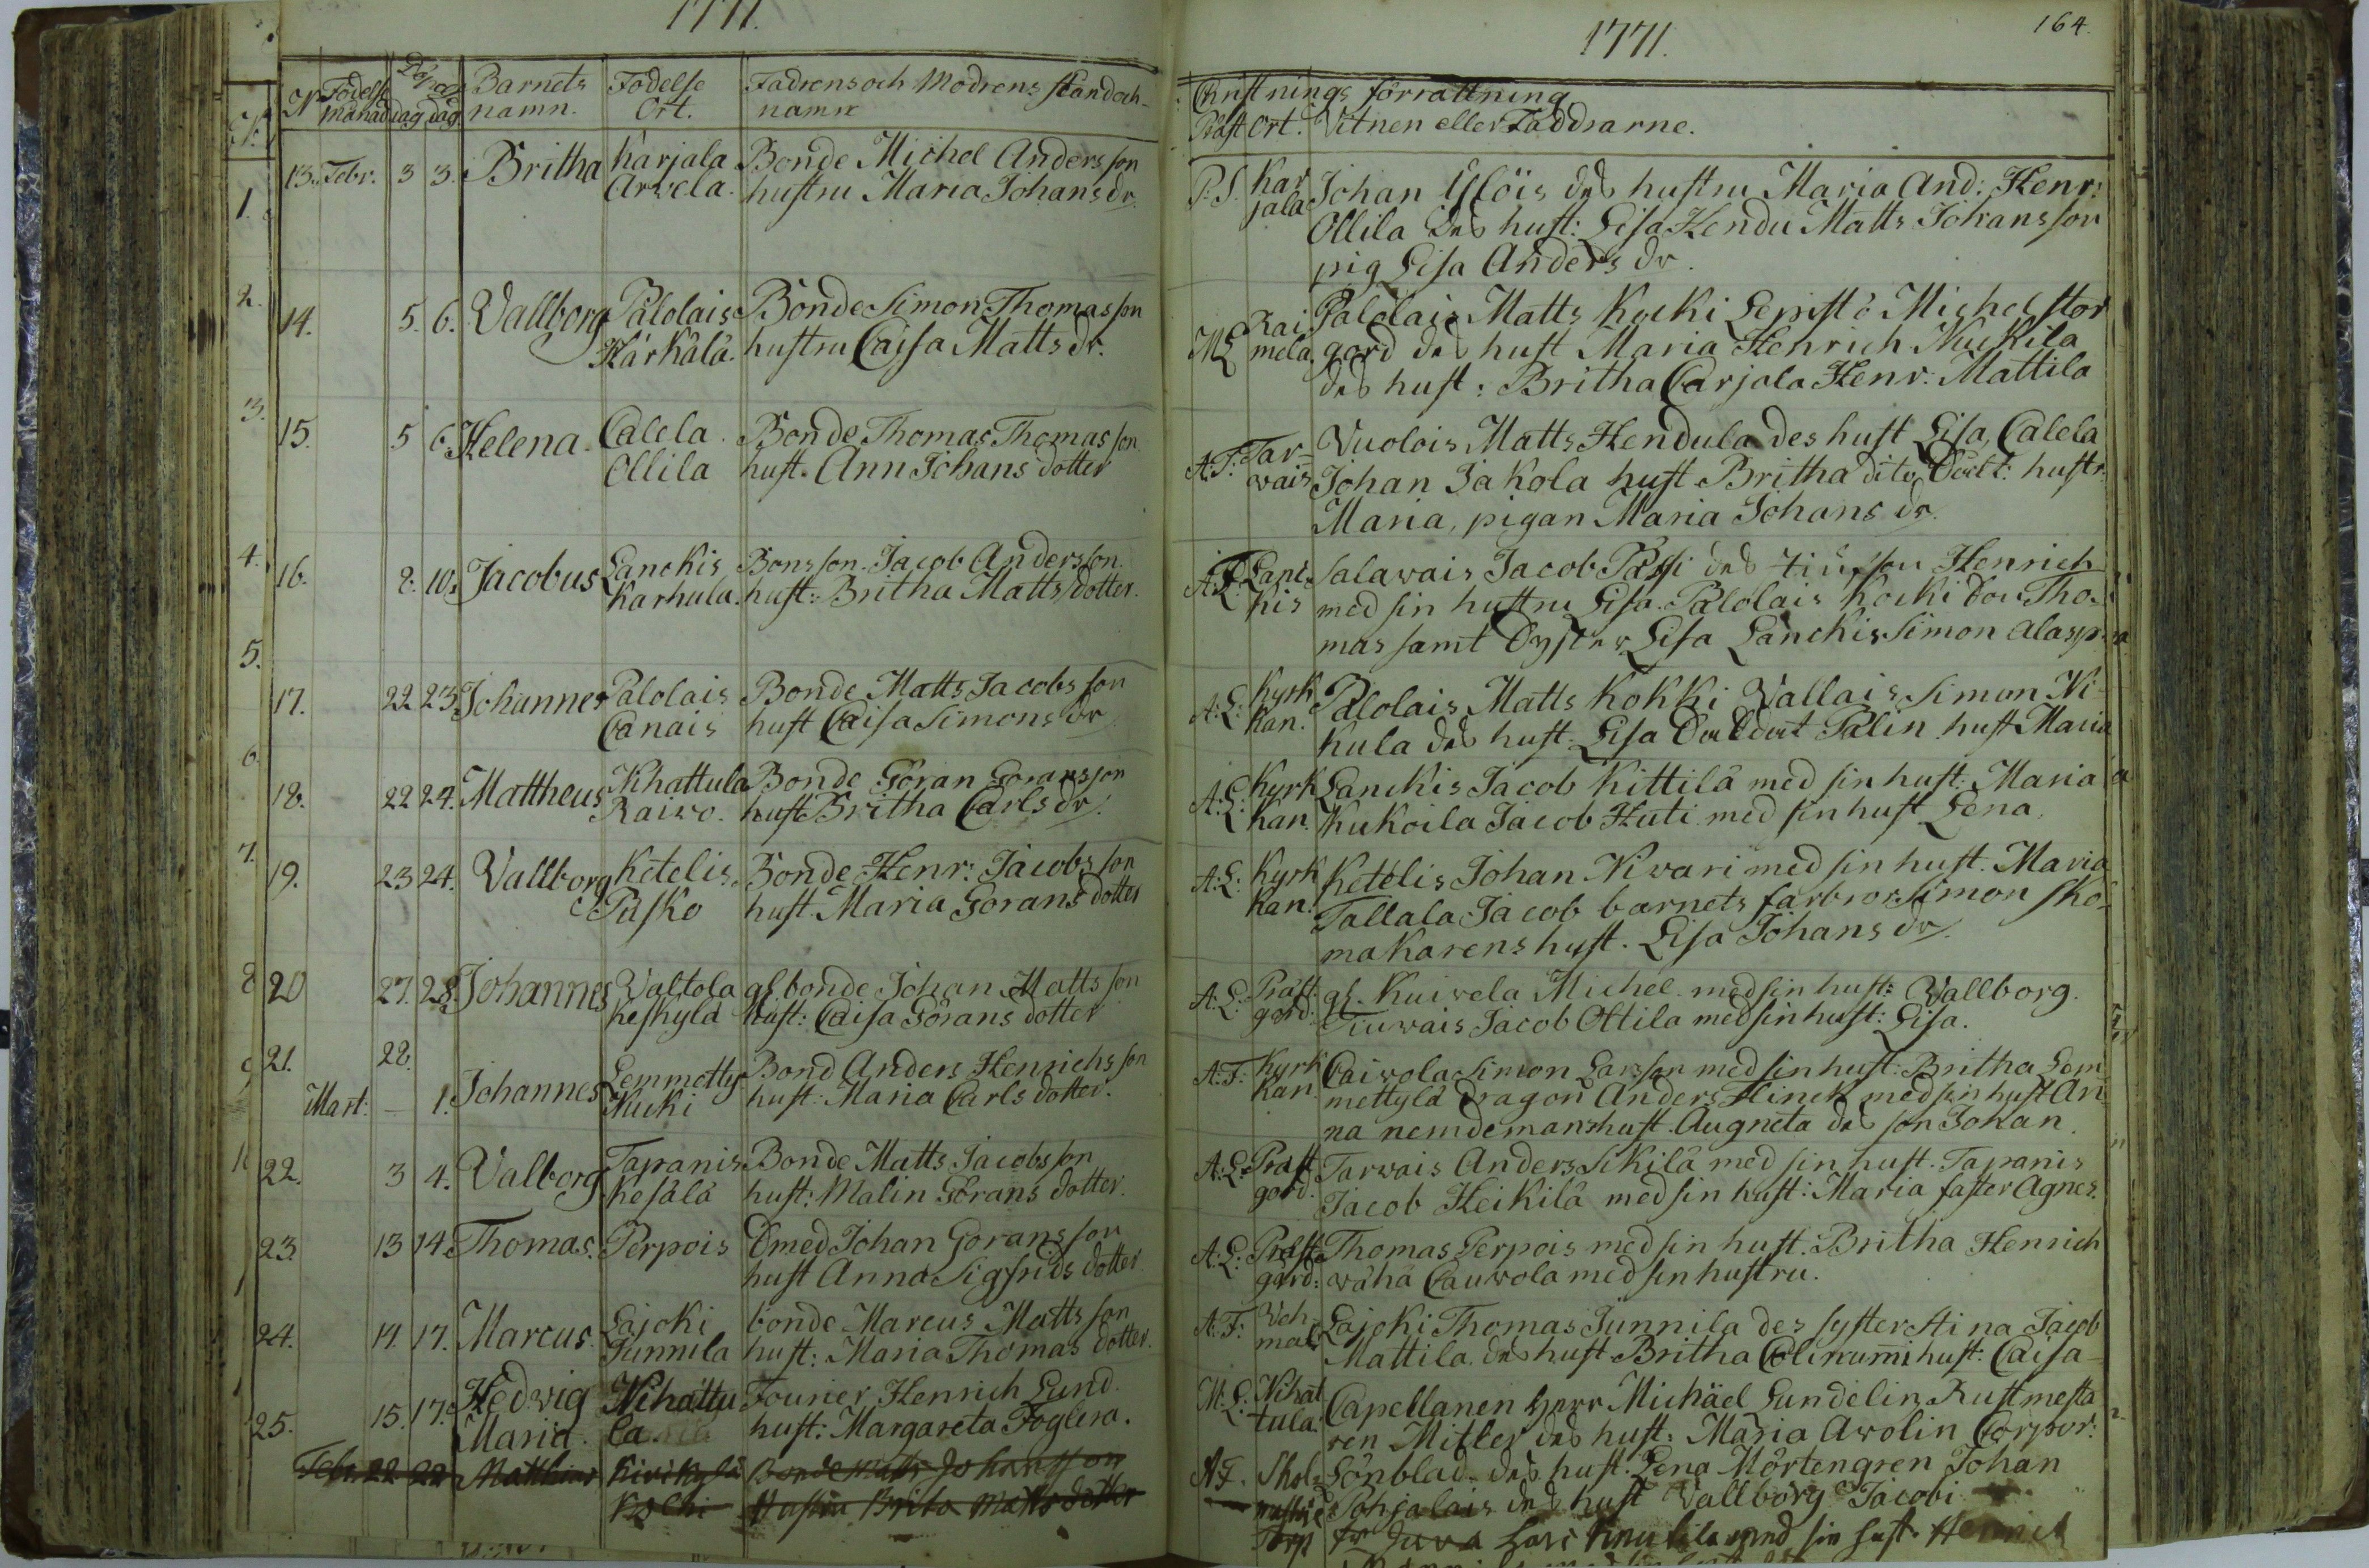 1771.
N Födelse Döpel Barnets Födelse Fadrens och Modrens stånd och
månad dag dag namn. Ort. namn
13. Febr. 3 3. Britha Karjala Bonde Michel Andersson
Arvela. hustru Maria Johans dr.
14. 5. 6. Vallborg Palolais Bonde Simon Thomasson
Härkälä. hustru Caisa Matts dr.
15. 5 6. Helena. Calela. Bonde Thomas Thomasson
Ollila hust. Ann Johans dotter
16. 8. 10. Jacobus Lanckis Bonsson Jacob Andersson.
Karhula. hust: Britha Matts dotter.
17. 22 23 Johannes Palolais Bonde Matts Jacobsson
Canais hust Caisa Simons dr
18. 22 24. Mattheus Nihattula Bonde Göran Göransson
Raivo. hust Britha Carls dr.
19. 23 24. Vallborg Ketelis. Bonde Henr: Jacobsson
Pusko hust. Maria Görans dotter
20 27. 28. Johannes Valtola gl bonde Johan Mattsson
Keskylä hust: Caisa Görans dotter
21. 28. Lemmetty Bond Anders Henrichsson
Mart: – 1. Johannes Kucki hust: Maria Carls dotter.
22. 3 4. Valborg Tapanis Bonde Matts Jacobsson
Kesälä hust: Malin Görans dotter.
23 13 14. Thomas. Perpois Smed Johan Göransson
hust Anna Sigfrids dotter
24. 17. 17. Marcus. Lajoki bonde Marcus Mattsson
Junnila hust: Maria Thomas dotter.
25. 15. 17. Hedwig Nihattu Fourier Henrich Lund
Maria. la. hust: Margareta Foglera.
Febr. 22 22 Matthias Kirikylä Bonde Matts Johansson
Kocki Hustru Brita Matts dotter
1.
2.
3.
4.
5.
6.
7.
8
9
164.
1771.
Christnings förrättning
Präst Ort. Vitnen eller Faddrarne.
P. S. Kar Johan Yllöis des hustru Maria And: Henr:
jala Ollila des hust: Lisa Hendu Matts Johansson
pig Lisa Anders dr.
ML Rai Palolais Matts Kocki Lepistö Michel stor
mela. gård des hust Maria Henrich Kuckila
des hust: Britha Carjala Henr: Mattila
A:F: Tar- Vuolois Matts Hendula des hust Lisa, Calela
wais Johan Jakola hust Britha dito hustr:
Maria, pigan Maria Johans dr.
A:F. Lanc Salavais Jacob Pässi des son Henrich
kis med sin hustru Lisa. Palolais Kocki Tho-
mas samt Syster Lisa Lanckis Simon Alasp
A:L: Kyrk Palolais Matts Kokki Vallais Simon Ni
kan. kula des hust. Lisa Palin hust Maria
A:L: Kyrk Lanckis Jacob Kittilä med sin hust: Maria
kan. Kukoila Jacob Huti med sin hust Lena.
A:L: Kyrk Ketelis Johan Nivari med sin hust. Maria
kan. Tallala Jacob barnets farbror Simon Sko-
makarens hust. Lisa Johans dr
A:L: Präst gl. Kuivela Michel med sin hust: Vallborg.
gård: Tiuwais Jacob Ottila med sin hust: Lisa.
A:F: Kyrk Caivola Simon Larsson med sin hust: Britha Lem
kan mettylä Dragon Anders Hinck med sin hust An
na nemdemans hust. Augneta des son Johan.
A:L: Präst Tarvais Anders Sikilä med sin hust. Tapanis
gård. Jacob Heikilä med sin hust: Maria faster Agnes.
A:L: Präst Thomas Perpois med sin hust: Britha Henrich
gård: wähä Cauvola med sin hustru.
A:F: Veh- Lajoki Thomas Junnila des syster Stina Jacob
mal Mattila. des hust Britha Colinummi hust: Caisa
M:L: Nihat Capellanen Herr Michäel Lundelin Rustmesta
tula. ren Mitler des hust: Maria Avolin Corpor:
A F. Skol Lönblad. des hust. Lena Mörtengren Johan
Pohjalais des hust Vallborg Jacobi
Torp Knutila med sin hust. Henrich